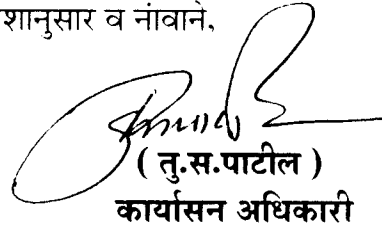 शानुसार व नांवाने,
( तु.स.पाटील )
कार्यासन अधिकारी